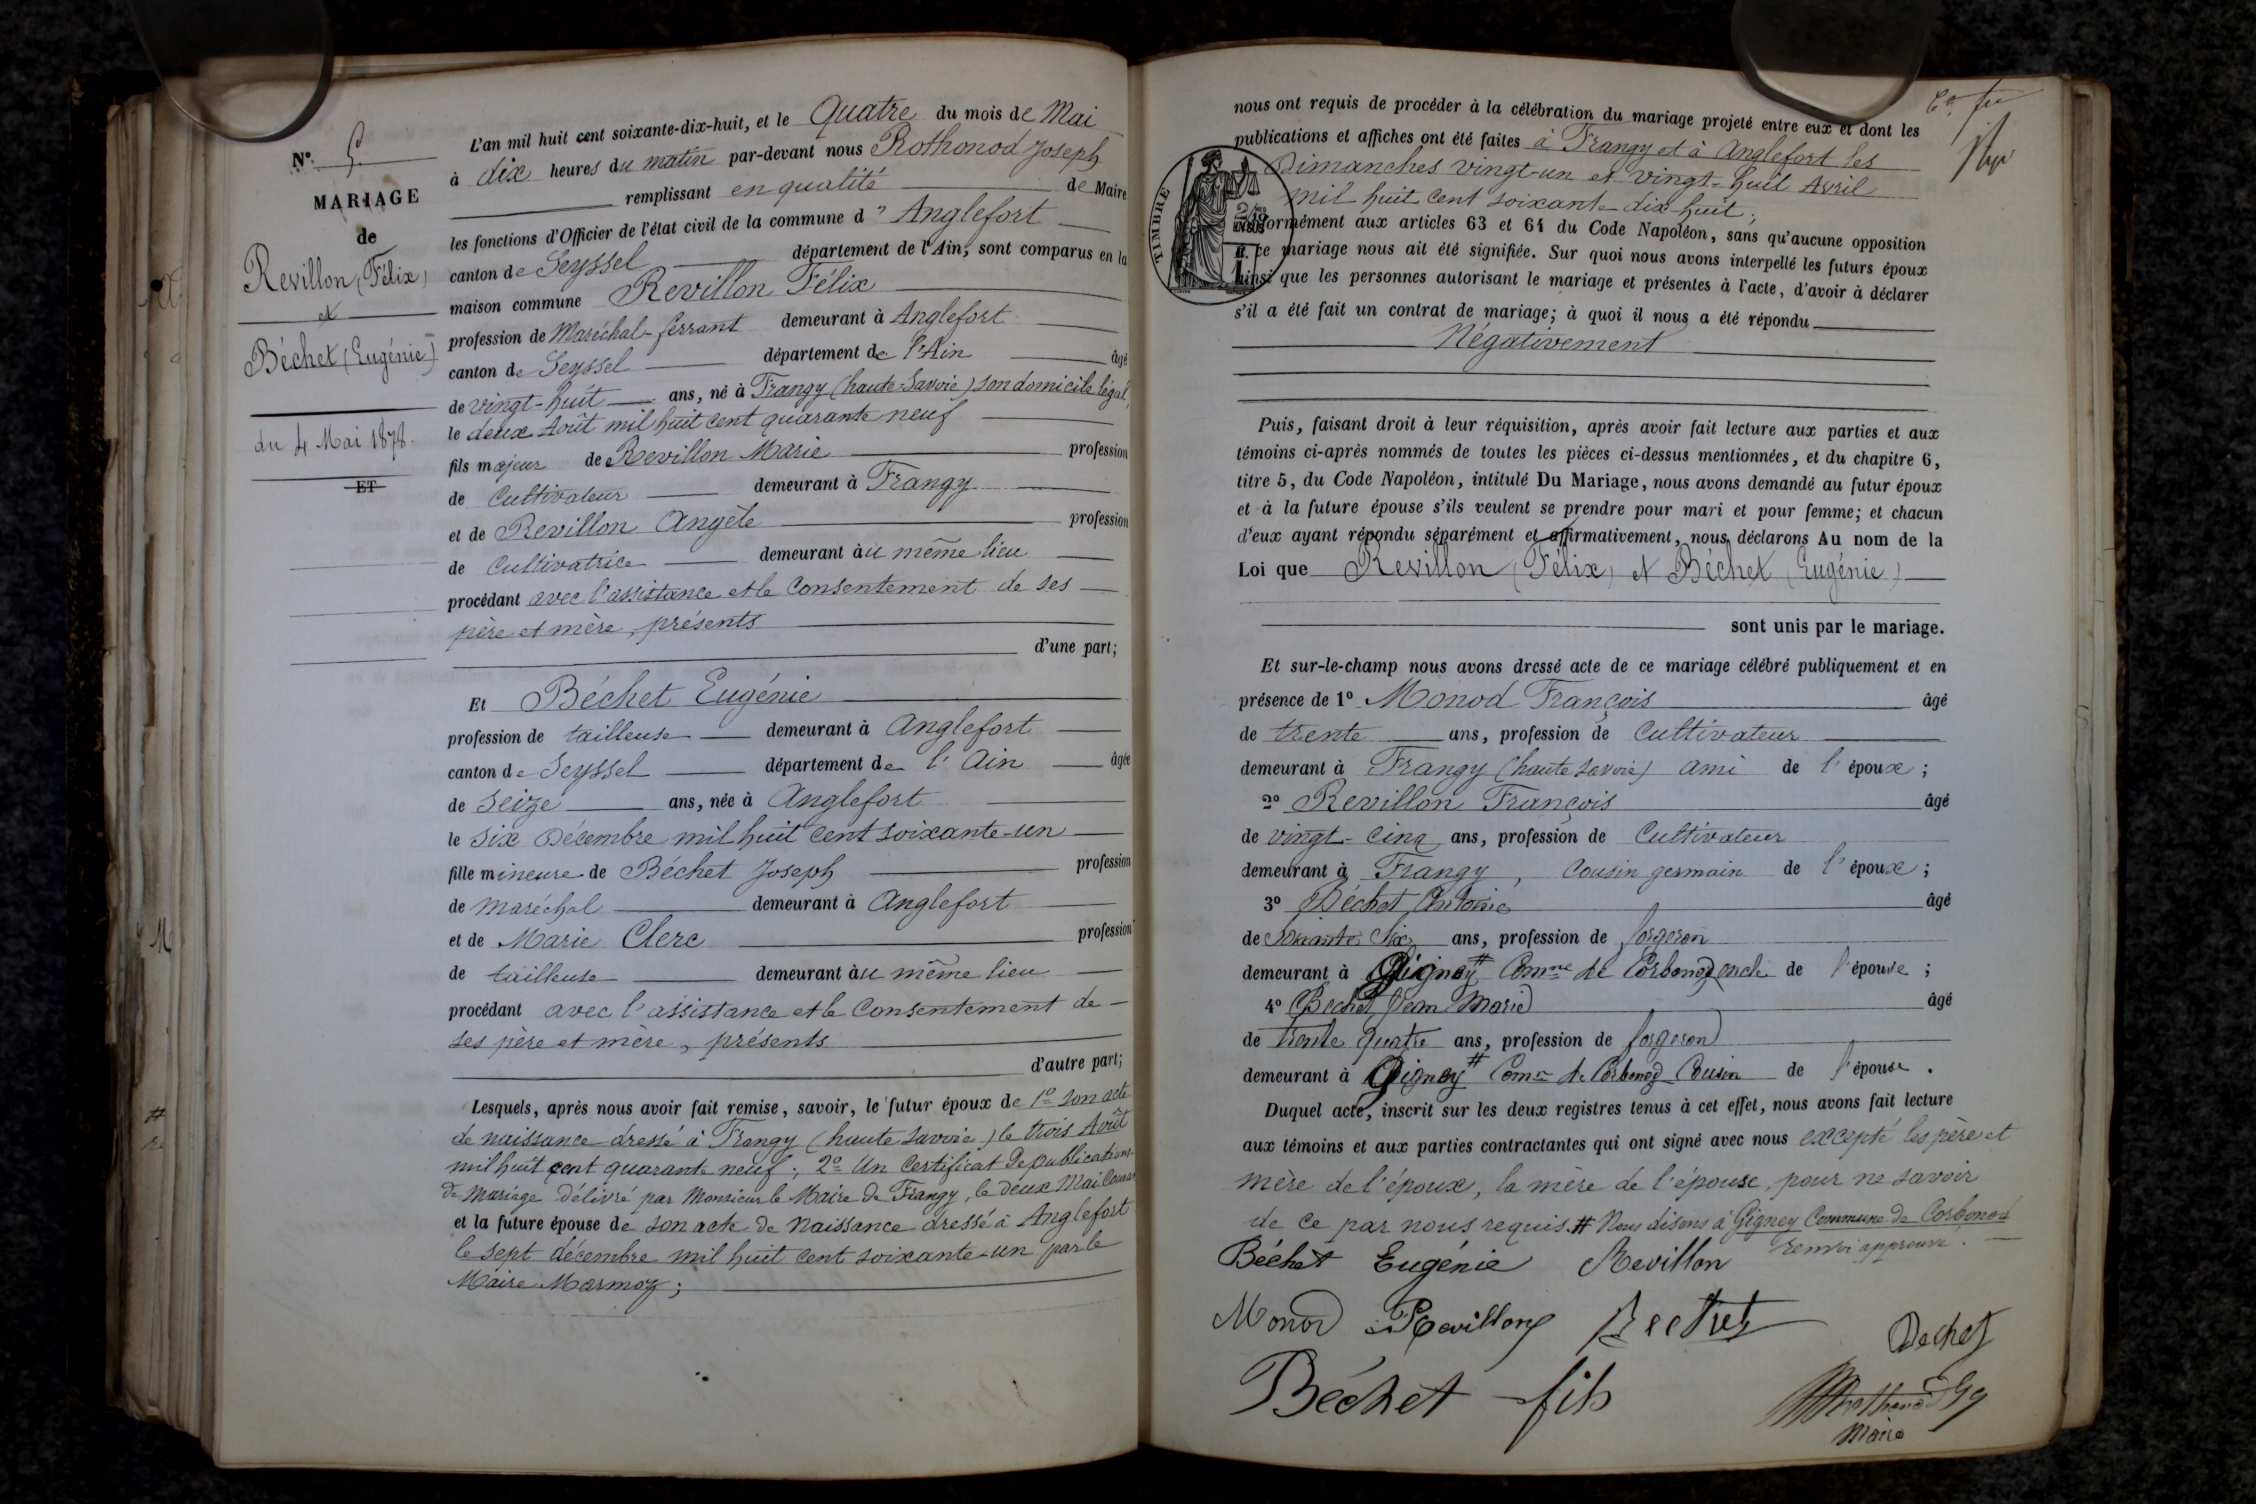 N° 5
MARIAGE
de
Revillon (Félix)
et
Béchet (Eugénie)
du 4 Mai 1878.
ET
L'an mil huit cent soixante-dix-huit, et le Quatre du mois de Mai
à dix heures du matin par-devant nous Rothonod Joseph
remplissant en qualité de Maire
les fonctions d'Officier de l'état civil de la commune d' Anglefort
canton de Seyssel département de l'Ain, sont comparus en la
maison commune Revillon Félix
profession de Maréchal-ferrant demeurant à Anglefort
canton de Seyssel département de l'Ain âgé
de vingt-huit ans, né à Frangy (haute-Savoie) son domicile légal,
le deux Août mil huit cent quarante neuf
fils majeur de Revillon Marie profession
de Cultivateur demeurant à Frangy
et de Revillon Angèle profession
de Cultivatrice demeurant àu même lieu
procédant avec l'assistance et le Consentement de ses
père et mère, présents
d'une part;
Et Béchet Eugénie
profession de tailleuse demeurant à Anglefort
canton de Seyssel département de l'Ain âgée
de Seize ans, née à Anglefort
le six Décembre mil huit cent soixante-un
fille mineure de Béchet Joseph profession
de maréchal demeurant à Anglefort
et de Marie Clerc profession
de tailleuse demeurant àu même lieu
procédant avec l'assistance et le Consentement de
ses père et mère, présents
d'autre part;
Lesquels, après nous avoir fait remise, savoir, le futur époux de 1° son acte
de naissance dressé à Frangy (haute Savoie) le trois Août
mil huit cent quarante neuf; 2° Un Certificat de publications
de Mariage délivré par Monsieur le Maire de Frangy, le deux Mai
et la future épouse de son acte de Naissance dressé à Anglefort
le sept décembre mil huit cent soixante-un par le
Maire Marmoz;
nous ont requis de procéder à la célébration du mariage projeté entre eux et dont les
publications et affiches ont été faites à Frangy et à Anglefort les
Dimanches vingt-un et vingt-huit Avril
mil huit cent soixante dix huit;
TIMBRE
conformément aux articles 63 et 64 du Code Napoléon, sans qu'aucune opposition
à ce mariage nous ait été signifiée. Sur quoi nous avons interpellé les futurs époux
ainsi que les personnes autorisant le mariage et présentes à l'acte, d'avoir à déclarer
s'il a été fait un contrat de mariage; à quoi il nous a été répondu
Négativement
Puis, faisant droit à leur réquisition, après avoir fait lecture aux parties et aux
témoins ci-après nommés de toutes les pièces ci-dessus mentionnées, et du chapitre 6,
titre 5, du Code Napoléon, intitulé Du Mariage, nous avons demandé au futur époux
et à la future épouse s'ils veulent se prendre pour mari et pour femme; et chacun
d'eux ayant répondu séparément et affirmativement, nous déclarons Au nom de la
Loi que Revillon (Félix) et Béchet (Eugénie)
sont unis par le mariage.
Et sur-le-champ nous avons dressé acte de ce mariage célébré publiquement et en
présence de 1° Monod François âgé
de trente ans, profession de Cultivateur
demeurant à Frangy (haute Savoie) ami de l'époux;
2° Revillon François âgé
de vingt-cinq ans, profession de Cultivateur
demeurant à Frangy, Cousin germain de l'époux;
3° Béchet Antoine âgé
de Soixante Six ans, profession de forgeron
demeurant à Gigney # Comne de Corbonod oncle de l'épouse;
4° Béchet Jean Marie âgé
de trente quatre ans, profession de forgeron
demeurant à Gigney # Comne de Corbonod Cousin de l'épouse.
Duquel acte, inscrit sur les deux registres tenus à cet effet, nous avons fait lecture
aux témoins et aux parties contractantes qui ont signé avec nous excepté les père et
mère de l'époux, la mère de l'épouse, pour ne savoir
de ce par nous requis. # Nous disons à Gigney Commune de Corbonod
renvoi approuvé.
Béchet Eugénie Revillon
Monod Revillon Bechet
Bechet
Béchet fils
Maire